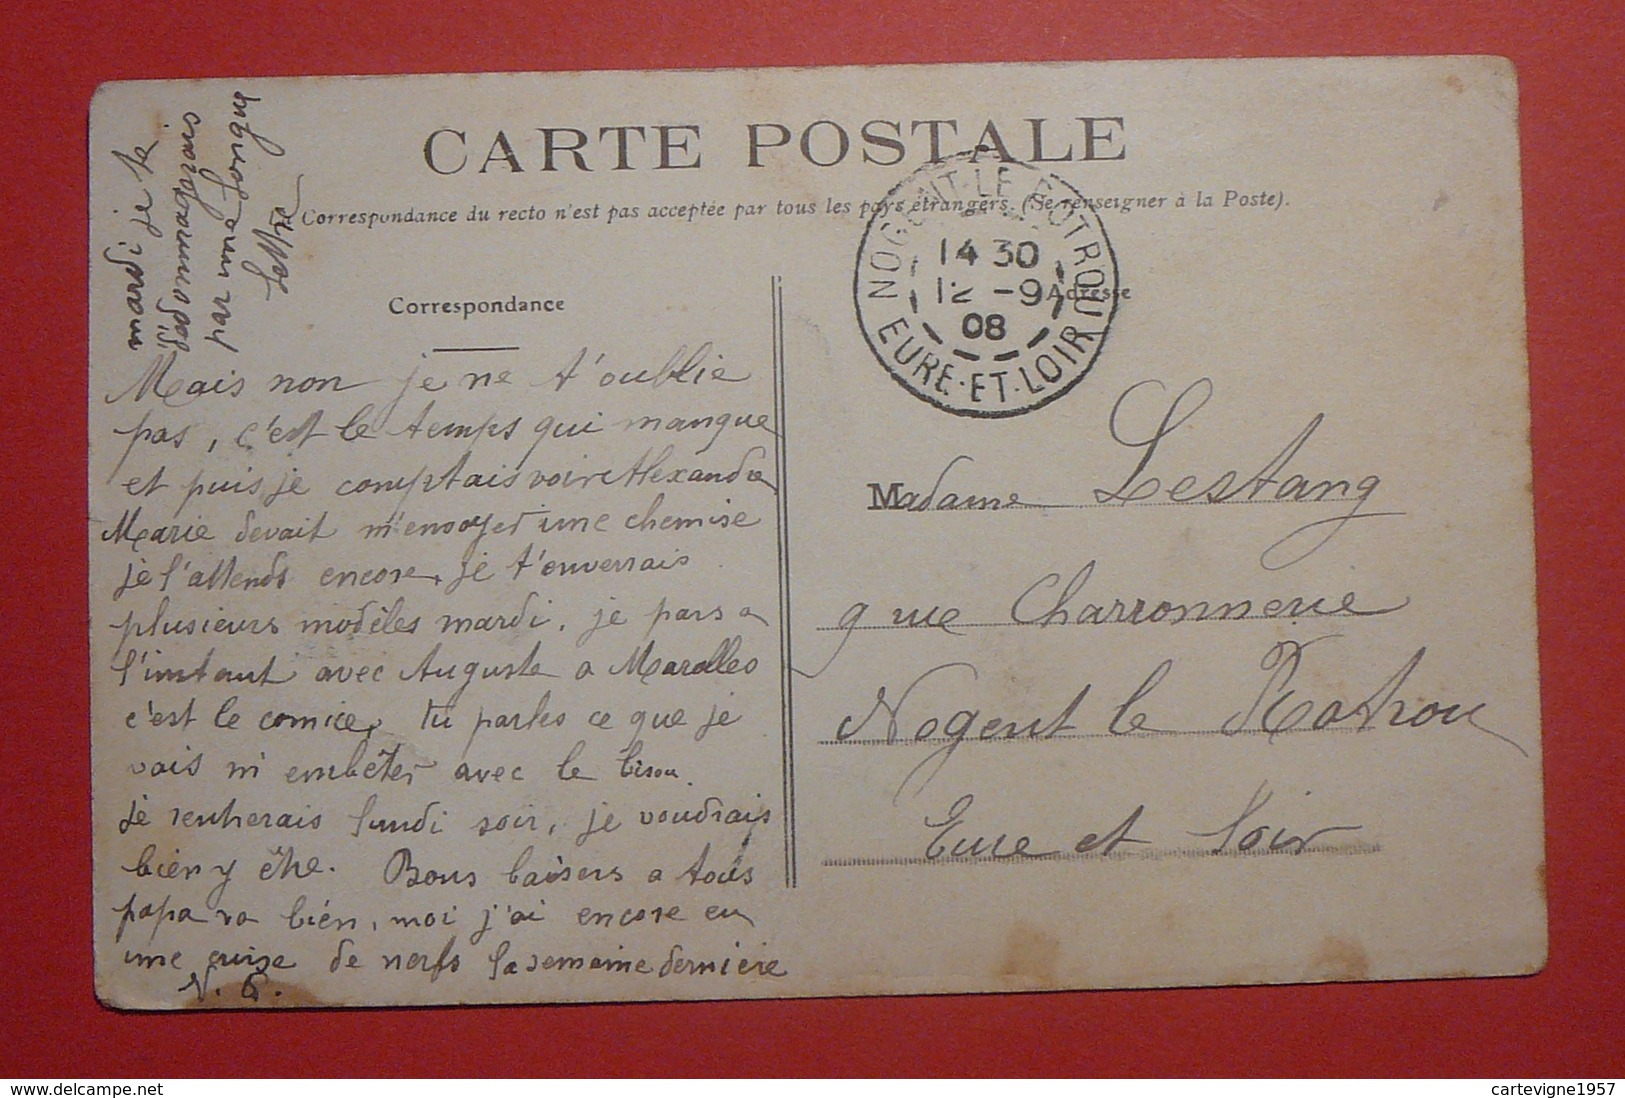 CARTE POSTALE
Correspondance du recto n'est pas acceptée par tous les pays étrangers. (Se renseigner à la Poste).
Correspondance
Adresse
NOGENT-LE-ROTROU
14 30
12 -9
08
EURE-ET-LOIR
mardi je te
par une longue
lettre
Mais non je ne t'oublie
pas, c'est le temps qui manque
et puis je comptais voire Alexandre
Marie devait m'envoyer une chemise
je l'attends encore, je t'enverrais
plusieurs modèles mardi, je pars a
l'instant avec Auguste a Marolles
c'est le comice, tu parles ce que je
vais m'embêter avec le bisou.
je rentrerais lundi soir, je voudrais
bien y être. Bons baisers a tous
papa va bien, moi j'ai encore eu
une crise de nerfs la semaine dernière
Madame Lestang
9 rue Charronnerie
Nogent le Rotrou
Eure et Loir
www.delcampe.net
cartevigne1957